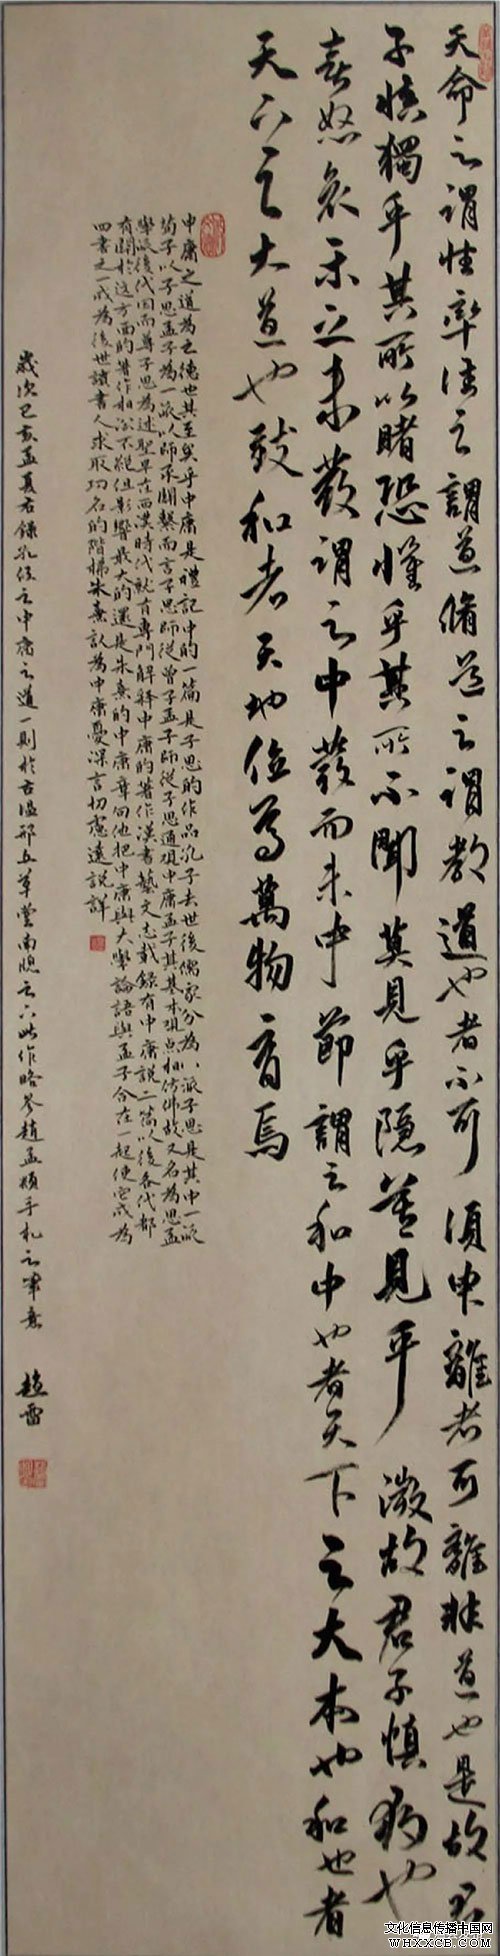 天命之谓性率性之謂道脩道之谓教道也者不可须申離者可離非道也是故君
子慎獨乎其所以睹恐懼乎其所不聞莫見乎隐莫見乎微故君子慎獨也
喜怒哀乐之未發谓之中發而未中節謂之和中也者天下之大本也和也者
天下之大道也致和者天地位焉萬物育焉
中庸之道為之德也其至矣乎中庸是禮記中的一篇是子思的作品孔子去世後儒家分為八派子思是其中一派
荀子以子思孟子為一派以師承關繫而言子思師從曾子孟子師從子思通观中庸孟子其基本观点相仿佛故又名為思孟
學派後代因而尊子思為述聖早在西漢時代就有專門解释中庸的著作漢書藝文志載録有中庸說二篇以後各代都
有關於这方面的著作相沿不絕但影響最大的還是朱熹的中庸章句他把中庸與大學論語與孟子合在一起使它成為
四書之一成為後世讀書人求取功名的階梯朱熹认為中庸憂深言切慮遠說詳
歲次己亥孟夏右錄孔伋之中庸之道一則於古温邢丘草堂南窓之下此作略参趙孟頫手札之筆意 趙雷
文化信息传播中国网
WHXXCB.COM